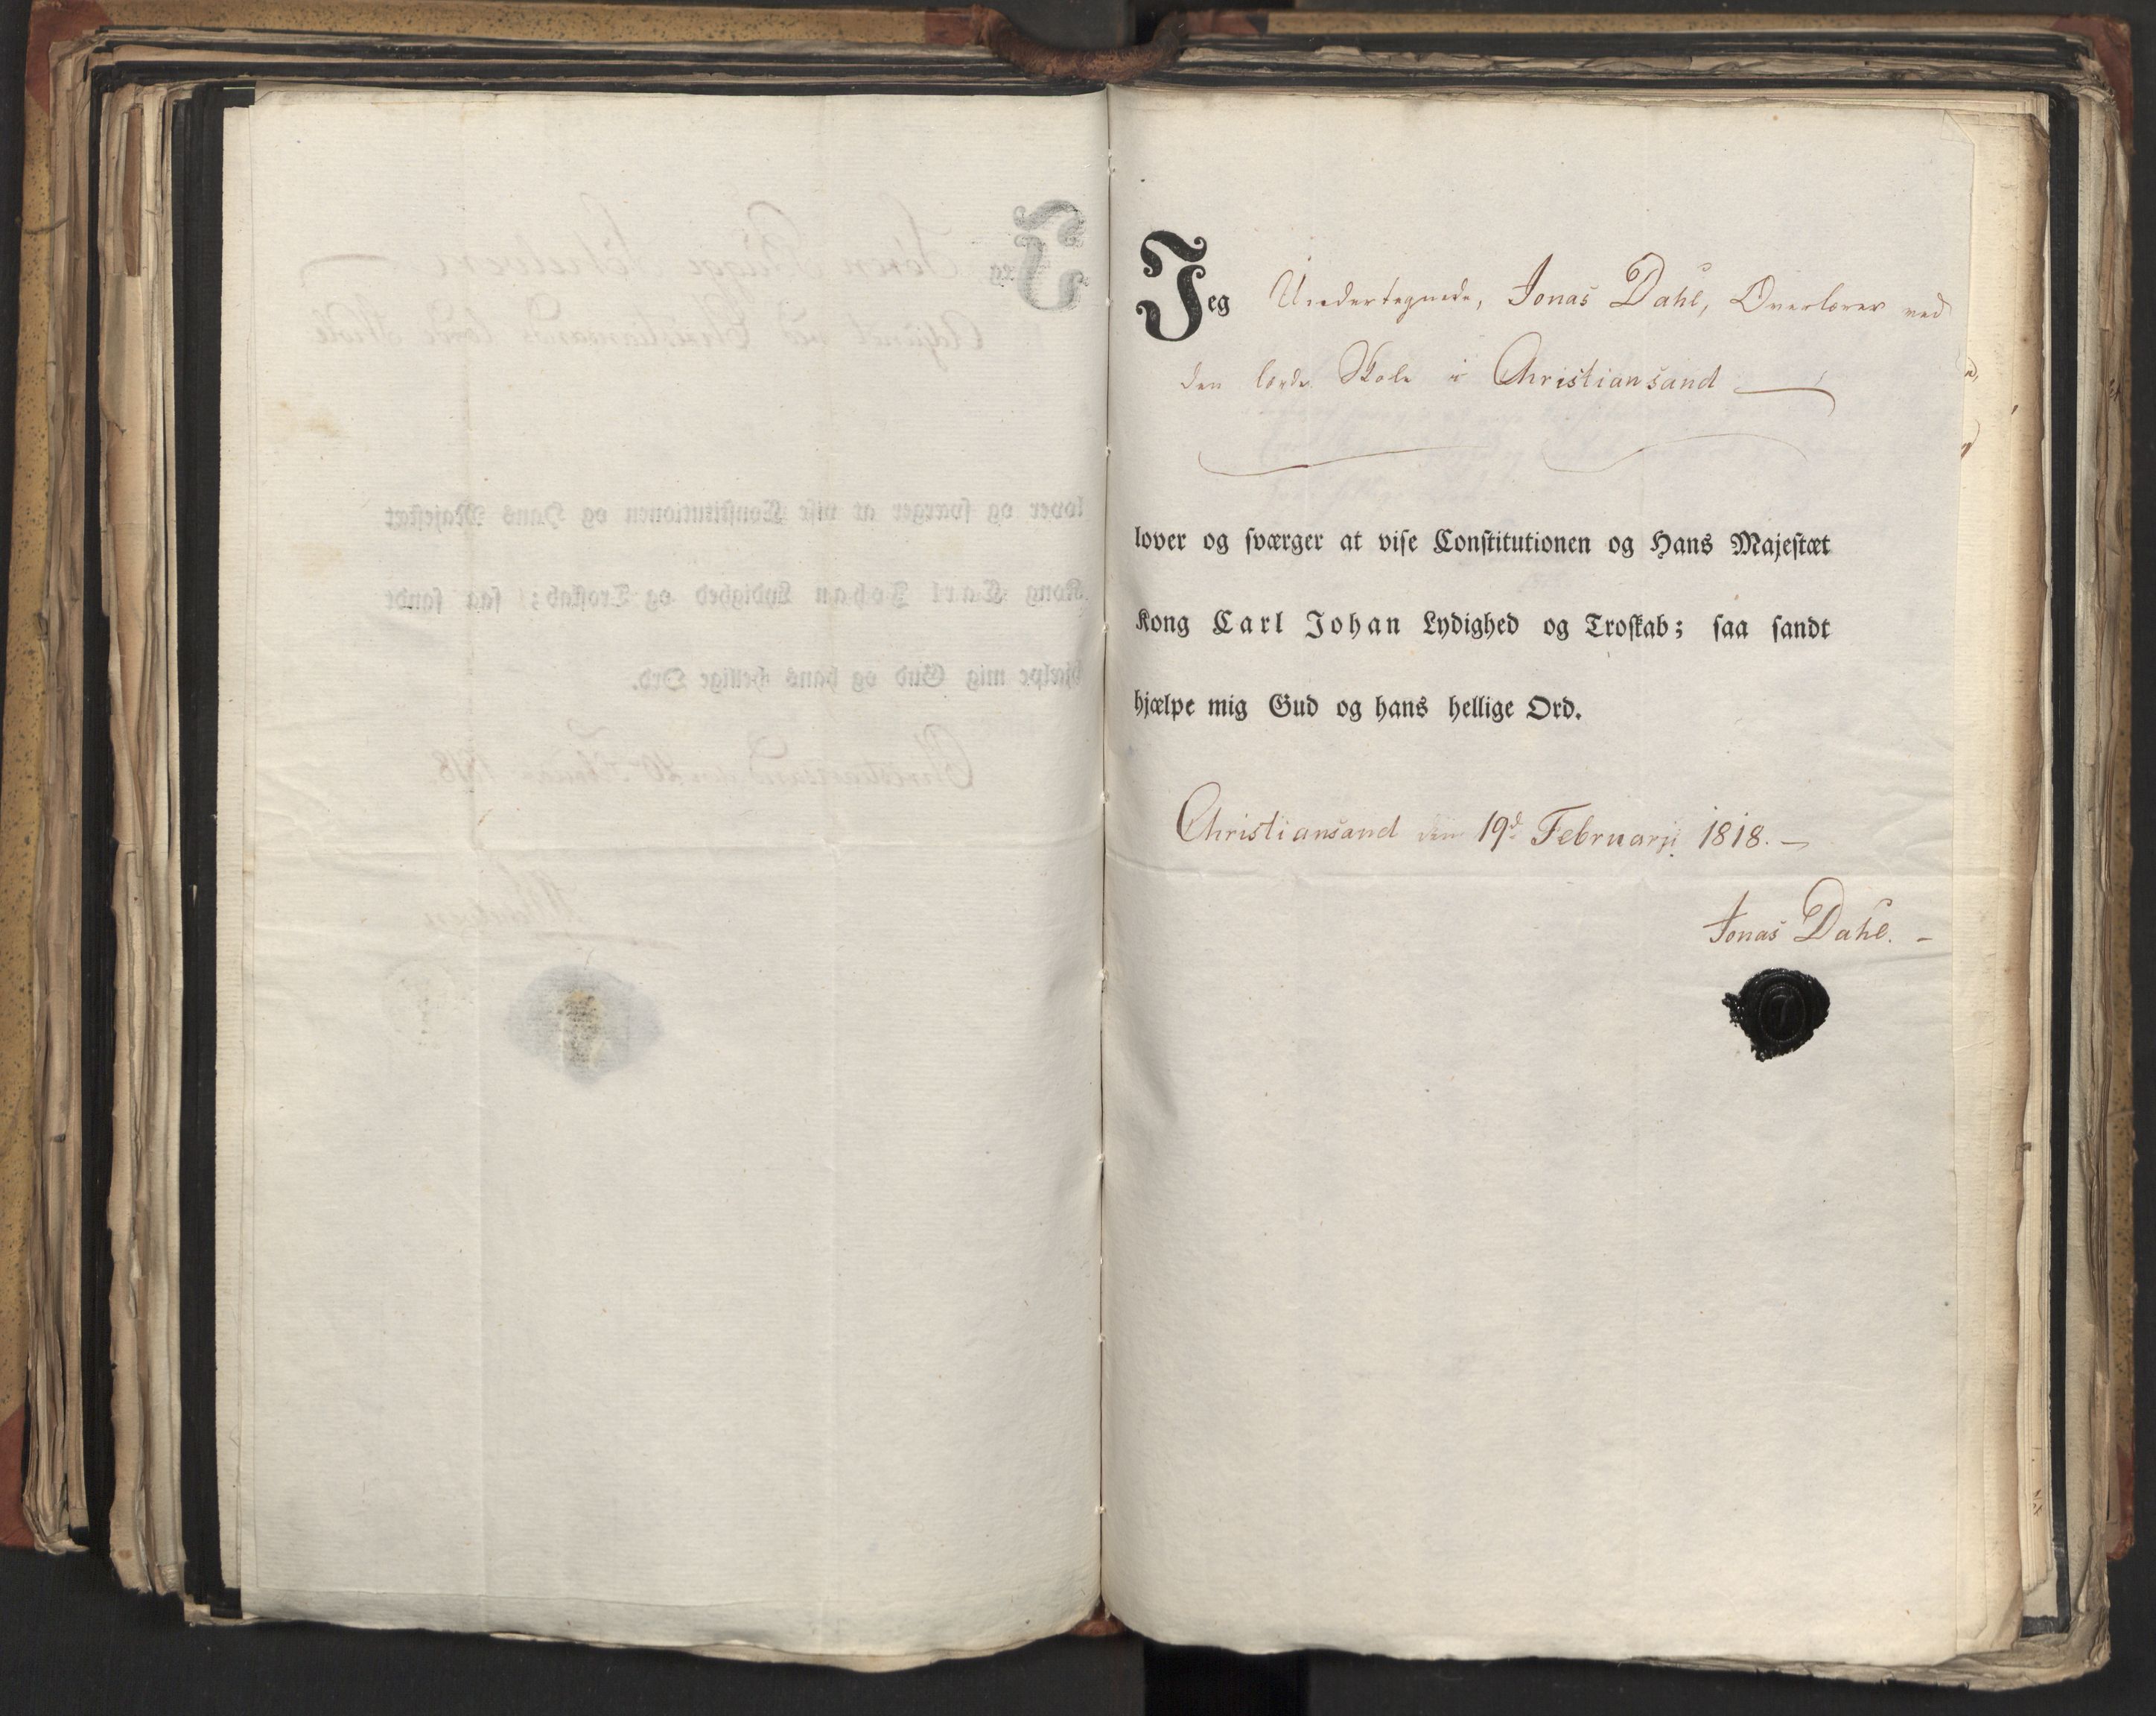 Jeg Undertegnede, Jonas Dahl, Overlærer ved
den lærde Skole i Christiansand
lover og sværger at vise Constitutionen og Hans Majestæt
Kong Carl Johan Lydighed og Troskab; saa sandt
hjælpe mig Gud og hans hellige Ord.
Christiansand den 19d Februarii 1818. –
Jonas Dahl. –